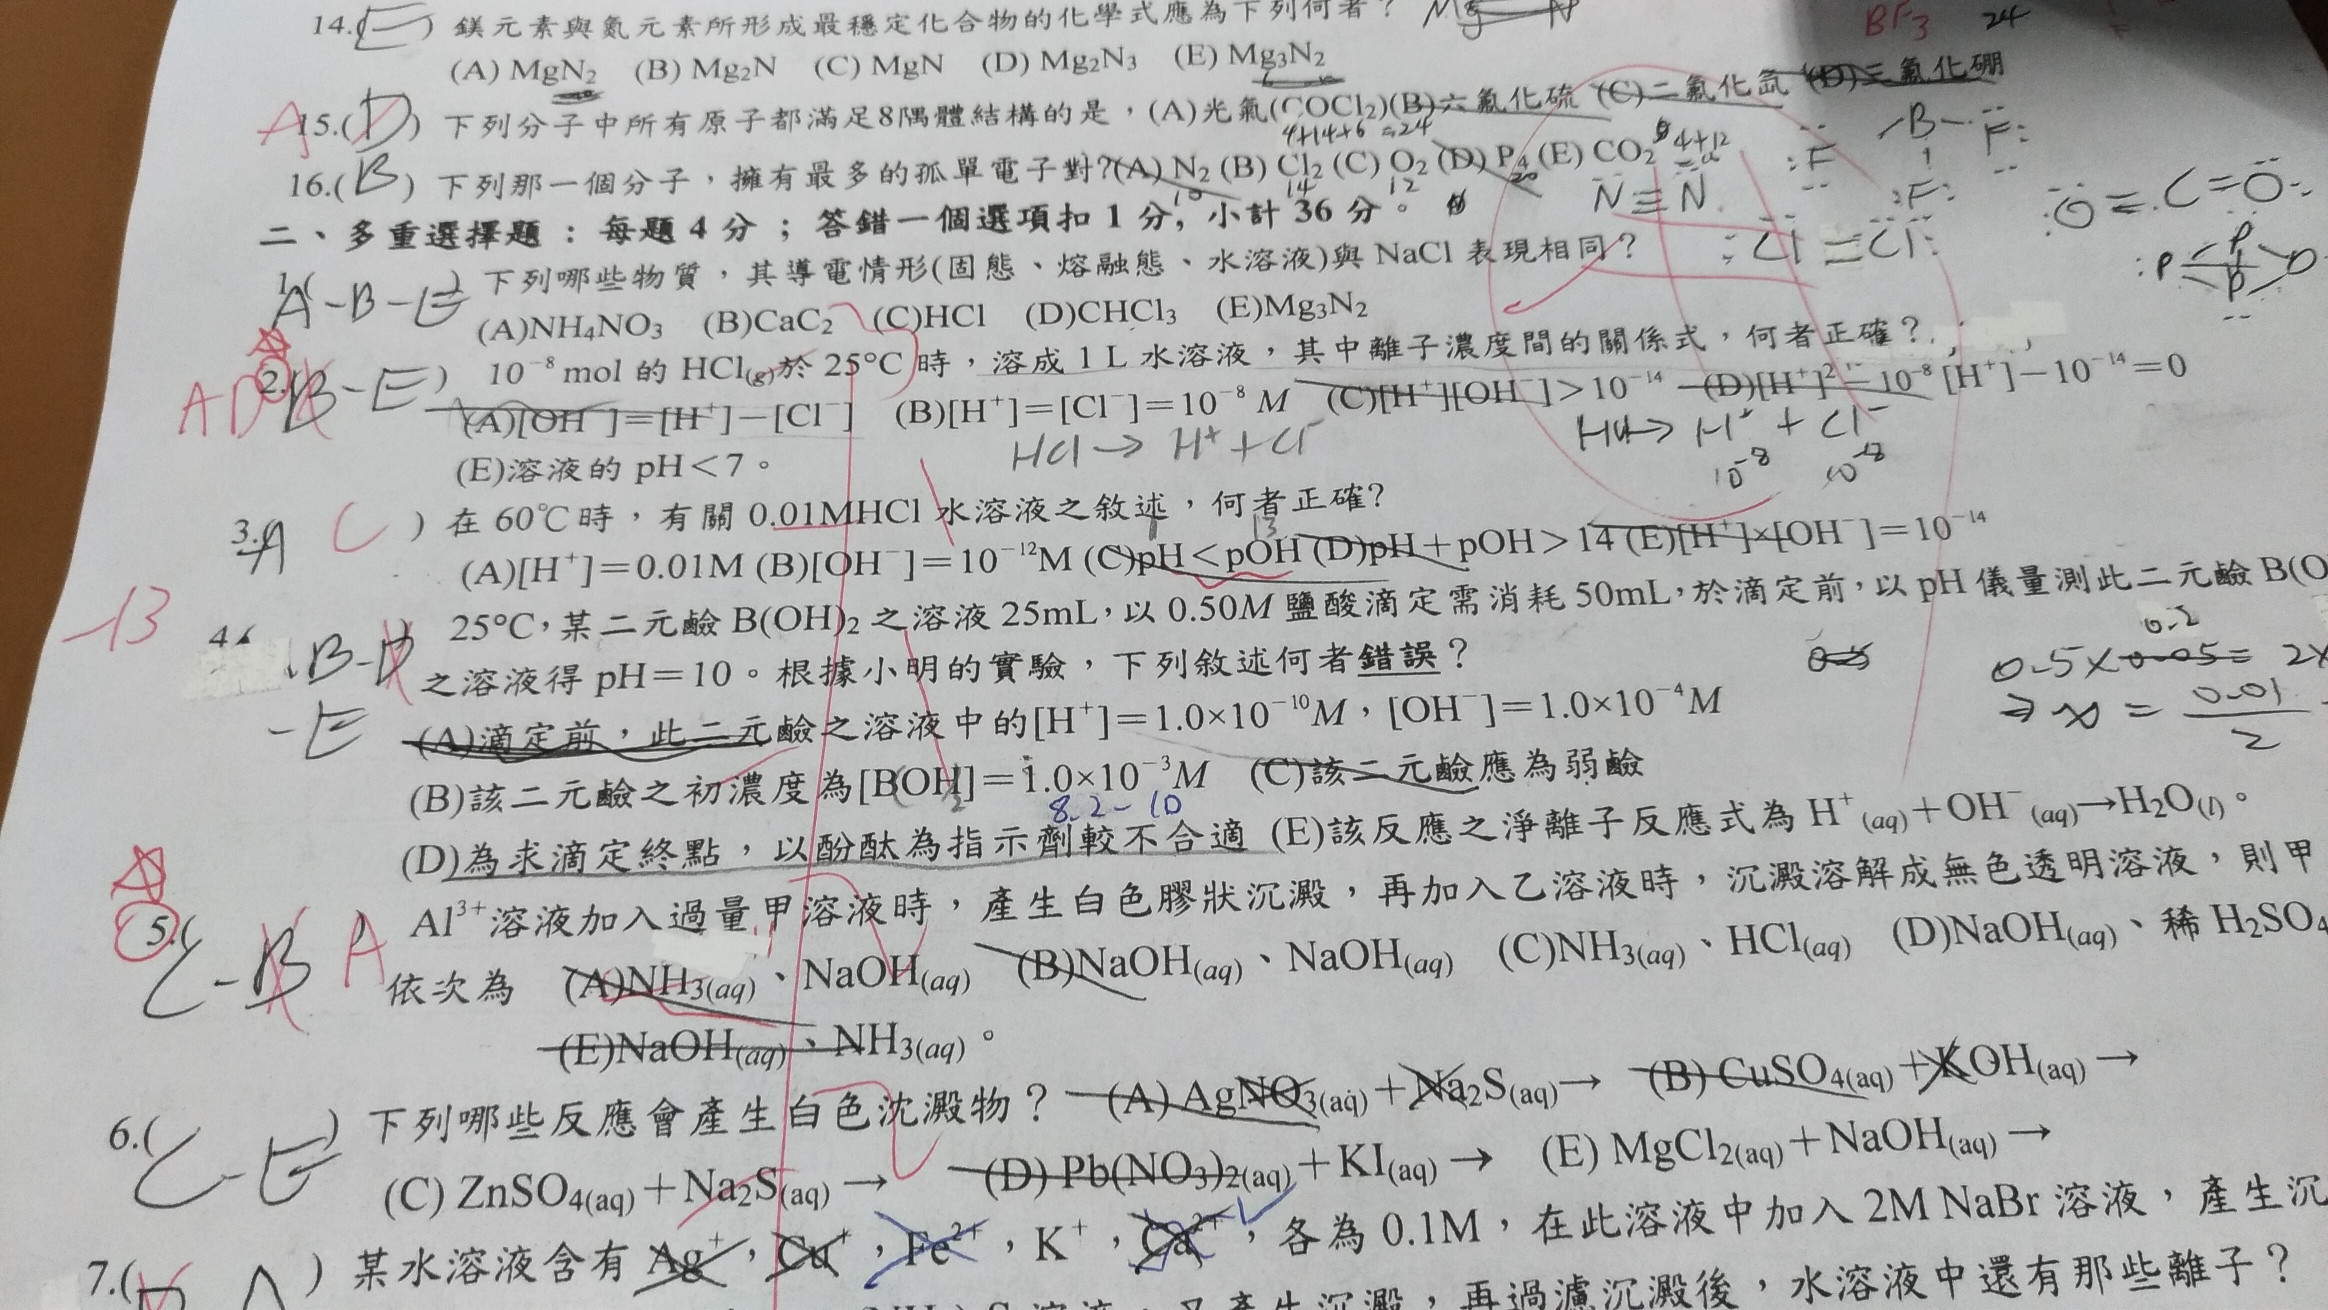 14.(E) 鎂元素與氮元素所形成最穩定化合物的化學式應為下列何者?
(A) MgN₂ (B) Mg₂N (C) MgN (D) Mg₂N₃ (E) Mg₃N₂
BF₃ 24
A 15.(D) 下列分子中所有原子都滿足8隅體結構的是,(A)光氣(COCl₂)(B)六氟化硫 (C)二氟化氙 (D)三氟化硼
4+14+6=24
16.(B) 下列那一個分子,擁有最多的孤單電子對?(A) N₂ (B) Cl₂ (C) O₂ (D) P₄ (E) CO₂
10 14 12 20
N≡N
二、多重選擇題:每題 4 分;答錯一個選項扣 1 分,小計 36 分。
1.(A-B-E) 下列哪些物質,其導電情形(固態、熔融態、水溶液)與 NaCl 表現相同?
(A)NH₄NO₃ (B)CaC₂ (C)HCl (D)CHCl₃ (E)Mg₃N₂
AD 2.(B-E) 10⁻⁸ mol 的 HCl(g)於 25°C 時,溶成 1 L 水溶液,其中離子濃度間的關係式,何者正確?
(A)[OH⁻]=[H⁺]-[Cl⁻] (B)[H⁺]=[Cl⁻]=10⁻⁸ M (C)[H⁺][OH⁻]>10⁻¹⁴ (D)[H⁺]²-10⁻⁸[H⁺]-10⁻¹⁴=0
HCl→H⁺+Cl⁻
H⁺ + Cl⁻
10⁻⁸ 10⁻⁸
(E)溶液的 pH<7。
3.A C ) 在 60℃時,有關 0.01MHCl 水溶液之敘述,何者正確?
13
(A)[H⁺]=0.01M (B)[OH⁻]=10⁻¹²M (C)pH<pOH (D)pH+pOH>14 (E)[H⁺]×[OH⁻]=10⁻¹⁴
-13
4. B-D 25°C,某二元鹼 B(OH)₂ 之溶液 25mL,以 0.50M 鹽酸滴定需消耗 50mL,於滴定前,以 pH 儀量測此二元鹼 B(O
之溶液得 pH=10。根據小明的實驗,下列敘述何者錯誤?
0.5×0.05= 2x
-E (A)滴定前,此二元鹼之溶液中的[H⁺]=1.0×10⁻¹⁰M,[OH⁻]=1.0×10⁻⁴M
⇒ x = 0.01
2
(B)該二元鹼之初濃度為[BOH]=1.0×10⁻³M (C)該二元鹼應為弱鹼
8.2-10
(D)為求滴定終點,以酚酞為指示劑較不合適 (E)該反應之淨離子反應式為 H⁺(aq)+OH⁻(aq)→H₂O(l)。
5.( C-B A Al³⁺溶液加入過量甲溶液時,產生白色膠狀沉澱,再加入乙溶液時,沉澱溶解成無色透明溶液,則甲
依次為 (A)NH₃(aq)、NaOH(aq) (B)NaOH(aq)、NaOH(aq) (C)NH₃(aq)、HCl(aq) (D)NaOH(aq)、稀 H₂SO₄
(E)NaOH(aq)、NH₃(aq)。
6.(C-E) 下列哪些反應會產生白色沈澱物? (A) AgNO₃(aq)+Na₂S(aq)→ (B) CuSO₄(aq)+KOH(aq)→
(C) ZnSO₄(aq)+Na₂S(aq)→ (D) Pb(NO₃)₂(aq)+KI(aq)→ (E) MgCl₂(aq)+NaOH(aq)→
7.( ) 某水溶液含有 Ag⁺,Cu⁺,Fe²⁺,K⁺,Ca²⁺,各為 0.1M,在此溶液中加入 2M NaBr 溶液,產生沉
溶液,又產生沉澱,再過濾沉澱後,水溶液中還有那些離子?